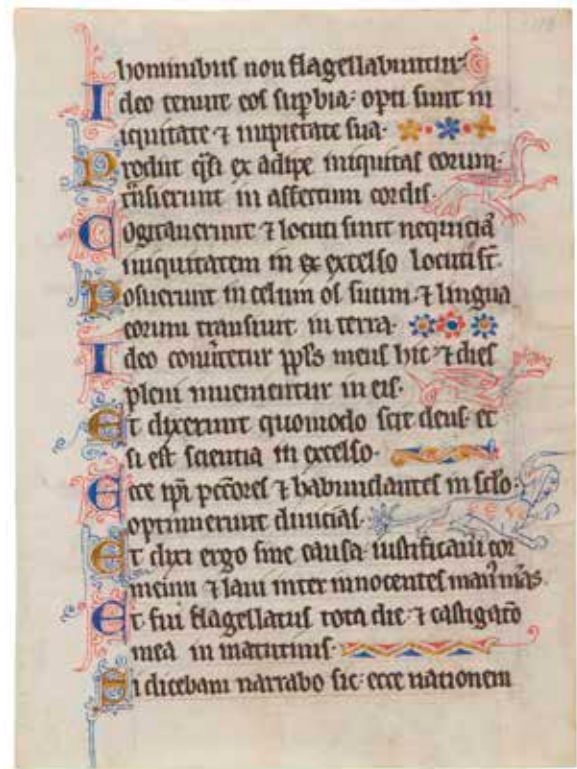 hominibus non flagellabuntur:
Ideo tenuit eos sup̄bia: opti sunt in
iquitate ⁊ impietate sua·
Prodiit q̄si ex adipe iniquitas eorum·
t̄nsierunt in affectum cordis·
Cogitauerunt ⁊ locuti sunt nequiciā
iniquitatem in ex excelso locuti st̄·
Posuerunt in celum os suum· ⁊ lingua
eorum transiuit in terra·
Ideo conu̓tetur pp̄ls meus hic· ⁊ dies
pleni inuenientur in eis·
Et dixerunt quomodo scit deus· et
si est scientia in excelso·
Ecce ip̄i pcc̄ores ⁊ habundantes in sc̄lo·
optinuerunt diuicias·
Et dixi ergo sine causa iustificaui cor
meum ⁊ laui inter innocentes man᷒ m̄as·
Et fui flagellatus tota die· ⁊ castigat̄o
mea in matutinis·
Si dicebam narrabo sic· ecce nationem